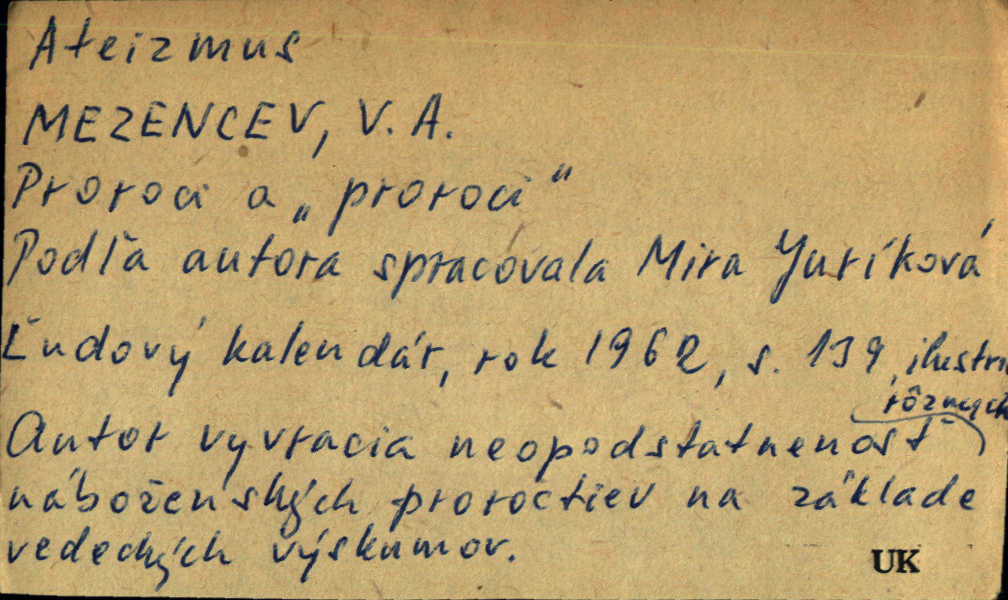 Ateizmus
MEZENCEV, V. A.
Proroci a „proroci“
Podľa autora spracovala Mira Juríková
Ľudový kalendár, rok 1962, s. 139, ilustr
rôznych
Autor vyvracia neopodstatnenosť
náboženských proroctiev na základe
vedeckých výskumov.
UK